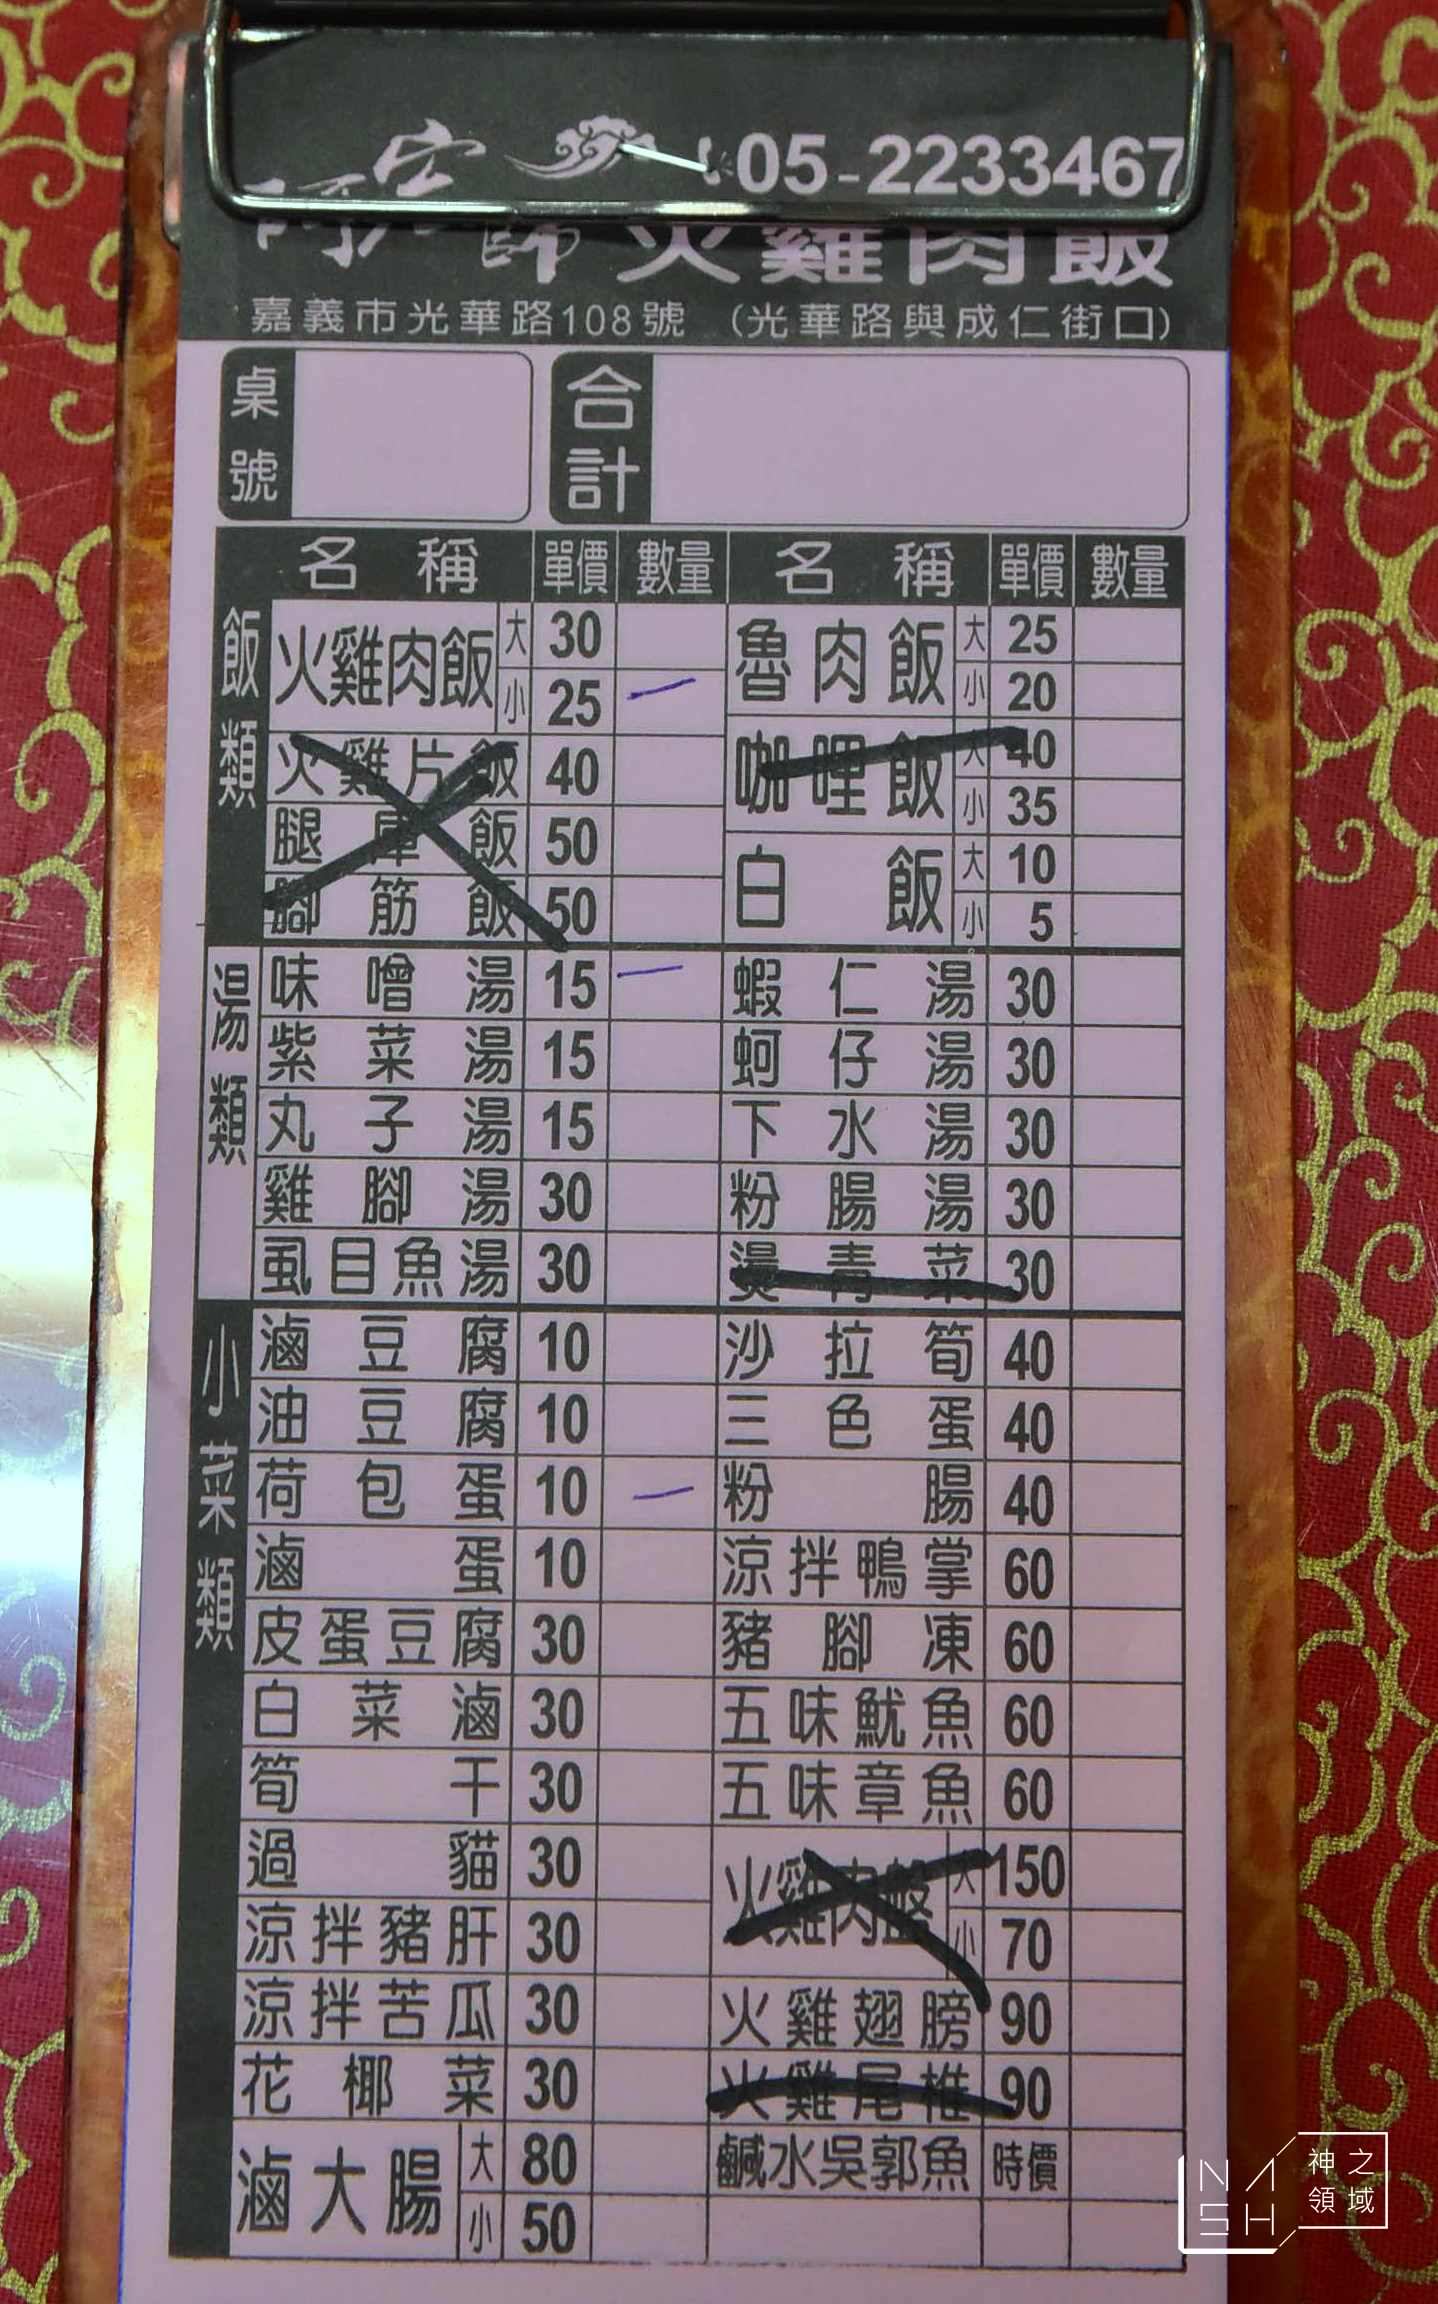 05-2233467
阿宏師火雞肉飯
嘉義市光華路108號 (光華路與成仁街口)
桌號 合計
名稱 單價 數量 名稱 單價 數量
飯類
火雞肉飯 大 30 魯肉飯 大 25
小 25 一 小 20
火雞片飯 40 咖哩飯 大 40
腿庫飯 50 小 35
腳筋飯 50 白飯 大 10
小 5
湯類
味噌湯 15 一 蝦仁湯 30
紫菜湯 15 蚵仔湯 30
丸子湯 15 下水湯 30
雞腳湯 30 粉腸湯 30
虱目魚湯 30 燙青菜 30
小菜類
滷豆腐 10 沙拉筍 40
油豆腐 10 三色蛋 40
荷包蛋 10 一 粉腸 40
滷蛋 10 涼拌鴨掌 60
皮蛋豆腐 30 豬腳凍 60
白菜滷 30 五味魷魚 60
筍干 30 五味章魚 60
過貓 30 火雞肉盤 大 150
涼拌豬肝 30 小 70
涼拌苦瓜 30 火雞翅膀 90
花椰菜 30 火雞尾椎 90
滷大腸 大 80 鹹水吳郭魚 時價
小 50
NASH 神之領域